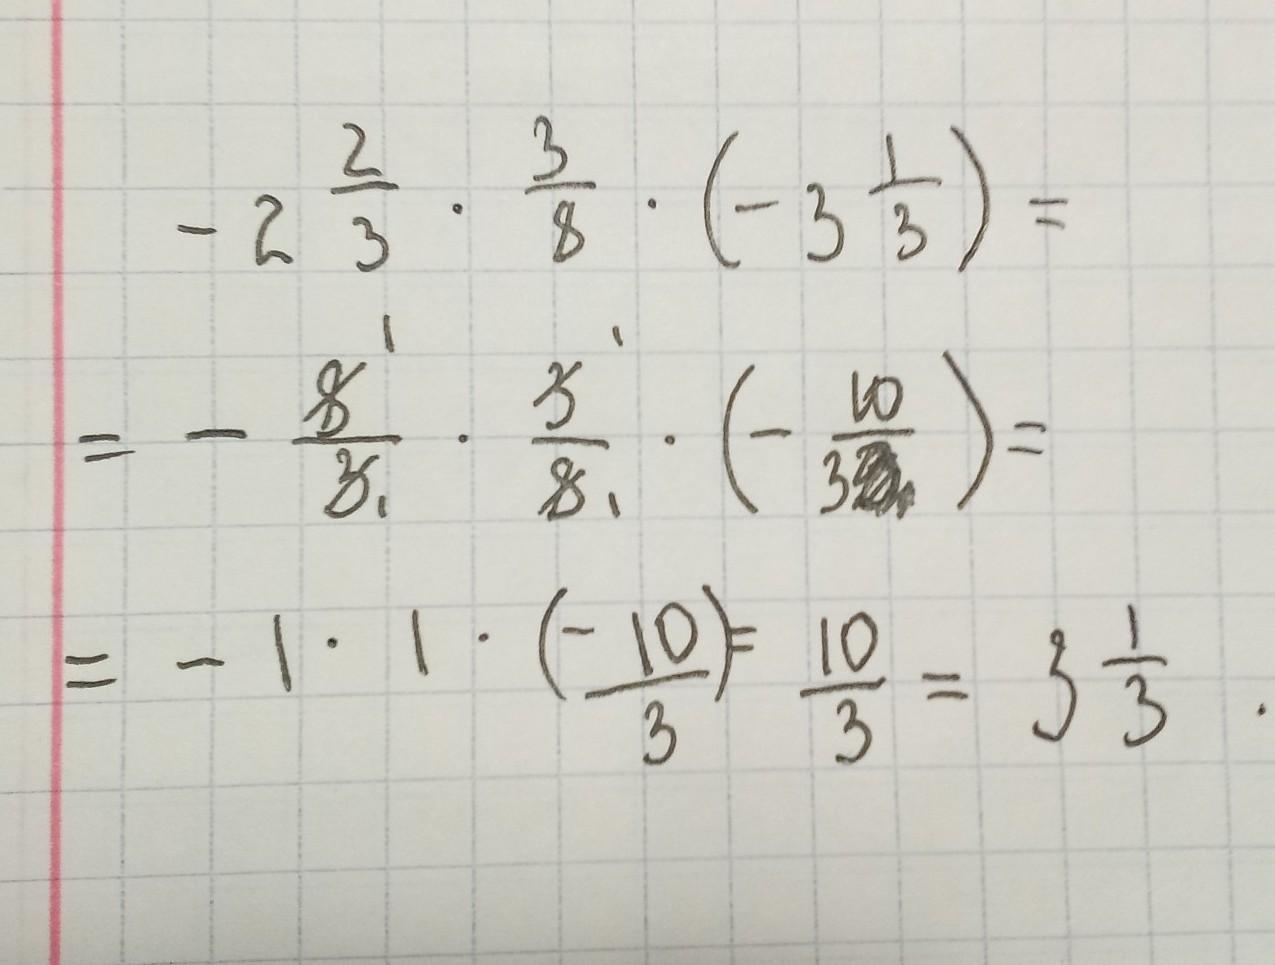 - 2 2/3 · 3/8 · (- 3 1/3) =
= - 8/3 1 1 · 3/8 1 1 · (- 10/3) =
= - 1 · 1 · (- 10/3) = 10/3 = 3 1/3 .